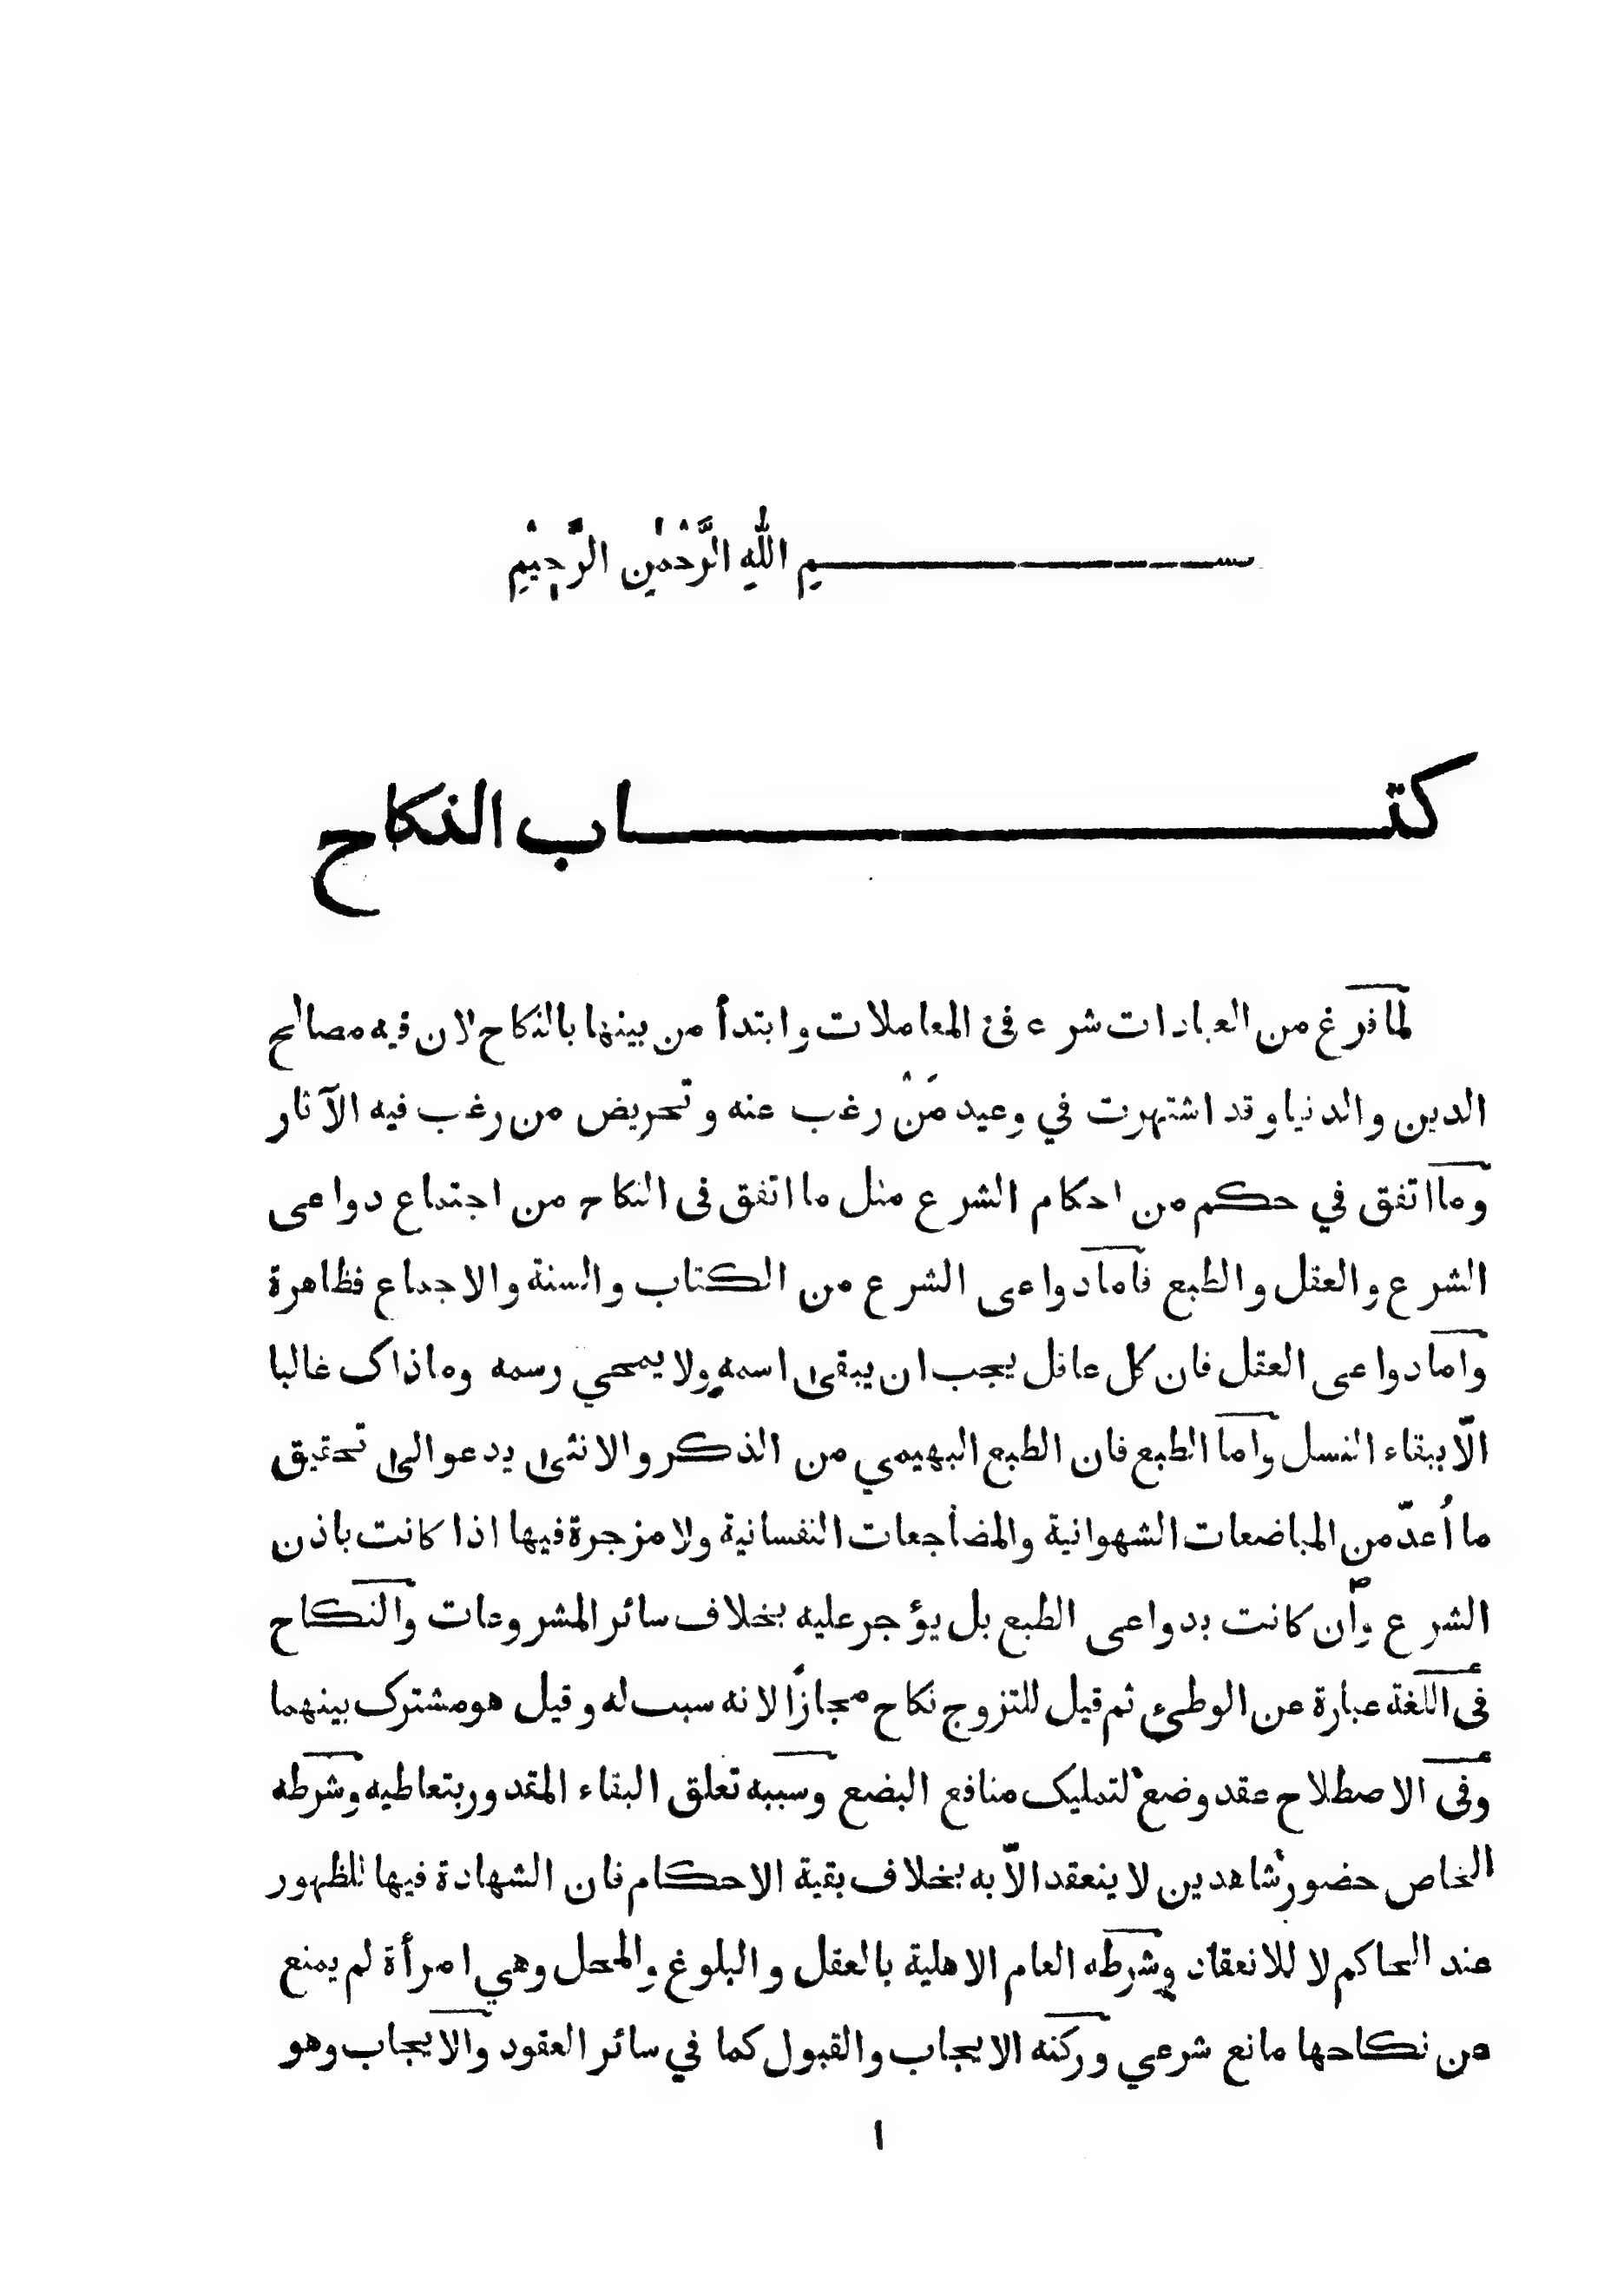 بســـــــم اللهِ الرَّحْمٰنِ الرَّحِيْمِ
كتـــــــاب النكاح
لما فرغ من العبادات شرع فى المعاملات وابتدأ من بينها بالنكاح لان فيه مصالح
الدين والدنيا وقد اشتهرت في وعيد مَنْ رغب عنه وتحريض من رغب فيه الآثار
وما اتفق في حكم من احكام الشرع مثل ما اتفق فى النكاح من اجتماع دواعى
الشرع والعقل والطبع فاما دواعى الشرع من الكتاب والسنة والاجماع فظاهرة
واما دواعى العقل فان كل عاقل يحب ان يبقى اسمه ولا يمحي رسمه وما ذاك غالبا
الّا ببقاء النسل واما الطبع فان الطبع البهيمي من الذكر والانثى يدعو الى تحقيق
ما اُعدّ من المباضعات الشهوانية والمضاجعات النفسانية ولا مزجرة فيها اذا كانت باذن
الشرع وان كانت بدواعى الطبع بل يؤجر عليه بخلاف سائر المشروعات والنكاح
فى اللغة عبارة عن الوطىء ثم قيل للتزوج نكاح مجازًا لانه سبب له وقيل هو مشترك بينهما
وفى الاصطلاح عقد وضع لتمليک منافع البضع وسببه تعلق البقاء المقدور بتعاطيه وشرطه
الخاص حضور شاهدين لا ينعقد الّا به بخلاف بقية الاحكام فان الشهادة فيها للظهور
عند الحاكم لا للانعقاد وشرطه العام الاهلية بالعقل والبلوغ والمحل وهي امرأة لم يمنع
من نكاحها مانع شرعي وركنه الايجاب والقبول كما في سائر العقود والايجاب وهو
١